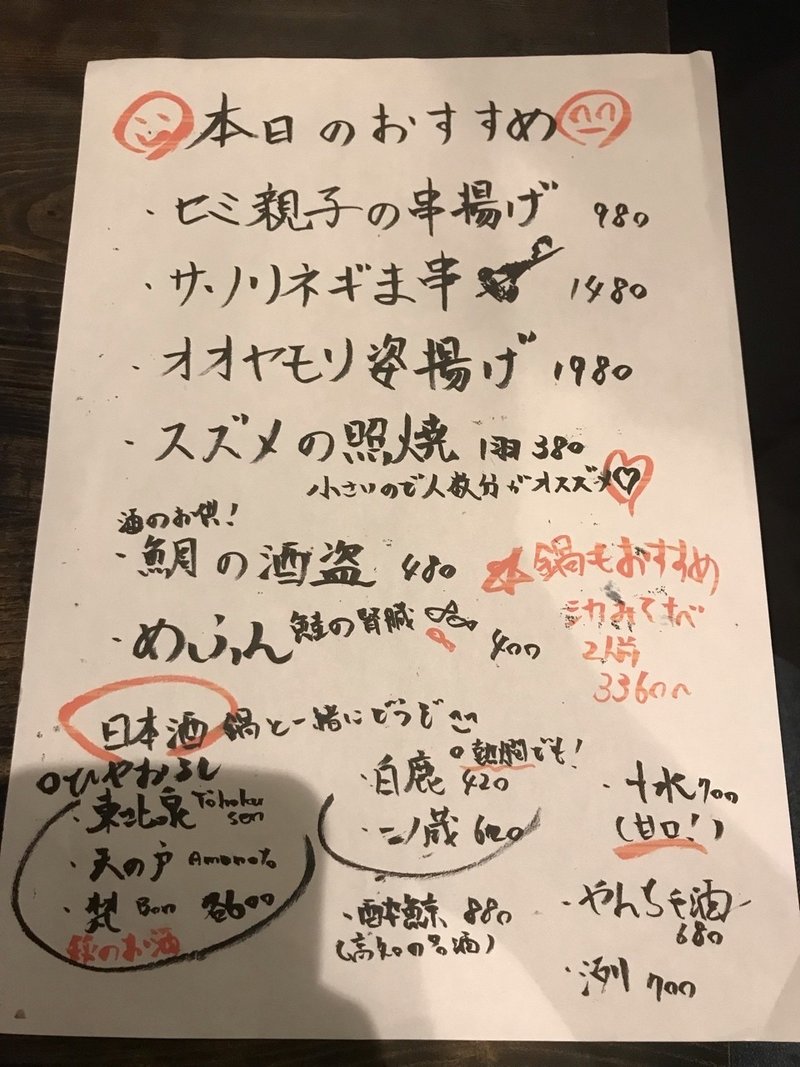 本日のおすすめ
・セミ親子の串揚げ 980
・サソリネギま串 1480
・オオヤモリ姿揚げ 1980
・スズメの照焼 1羽380
小さいので人数分がオススメ♡
酒のお供!
・鯛の酒盗 480
・めふん 鮭の腎臓 400
☆鍋もおすすめ
2人前
3360円
日本酒 鍋と一緒にどうぞ
ひやおろし
・東北泉 Tohoku sen
・天の戸 Amanoto
・梵 Bon 各600
秋のお酒
熱燗でも!
・白鹿 420
・一ノ蔵 620
・酔鯨 880
(高知の名酒)
・十水 700
(甘口!)
・やんちゃ酒
680
・洌 700